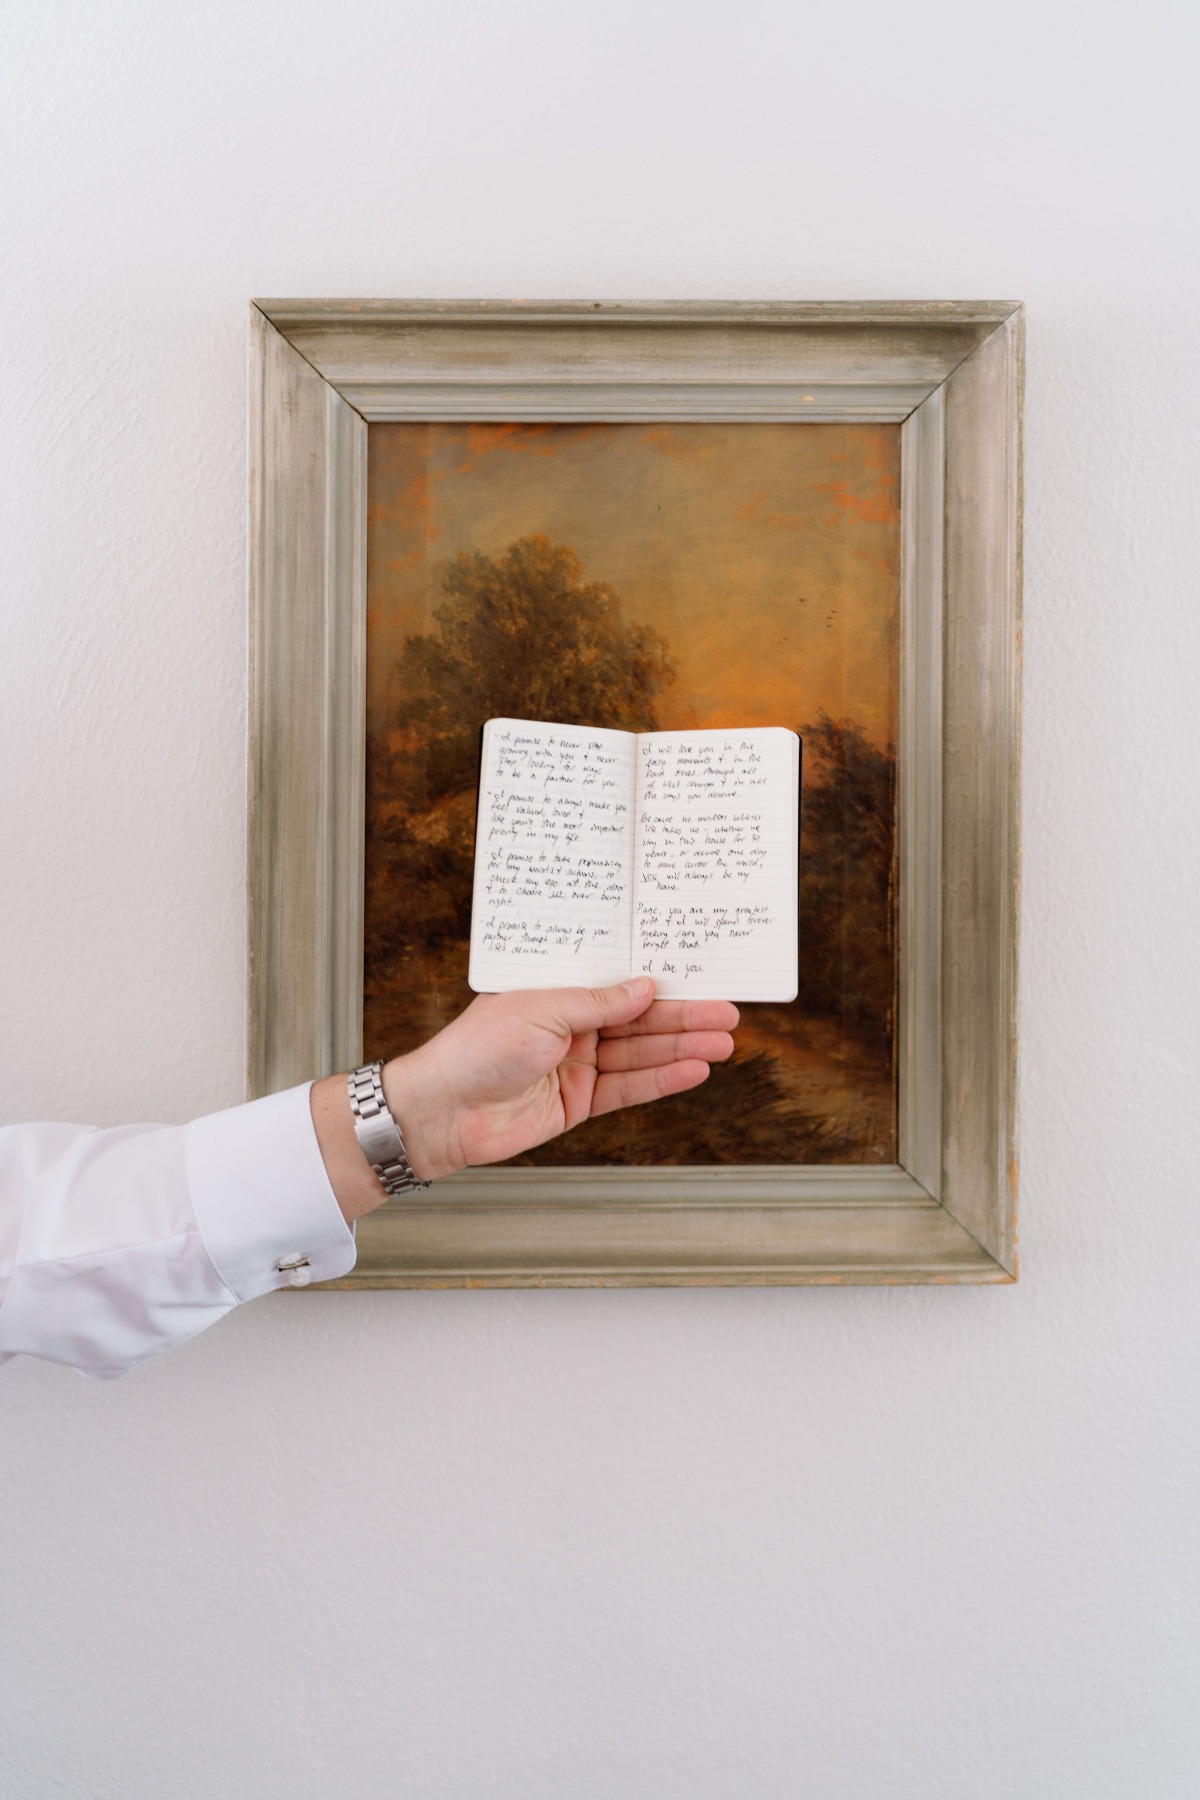 - I promise to never stop
growing with you & never
stop looking for ways
to be a partner for you.
- I promise to always make you
feel valued, loved &
like you're the most important
priority in my life.
- I promise to take responsibility
for my words & actions, to
check my ego at the door
& to choose us over being
right.
- I promise to always be your
partner through all of
life's decisions.
I will love you in the
easy moments & in the
hard ones, through all
of life's changes & in all
the ways you deserve.
Because no matter where
life takes us - whether we
stay in this house for 30
years, or decide one day
to move across the world,
you will always be my
home.
you are my greatest
gift & I will spend forever
making sure you never
forget that.
I love you.